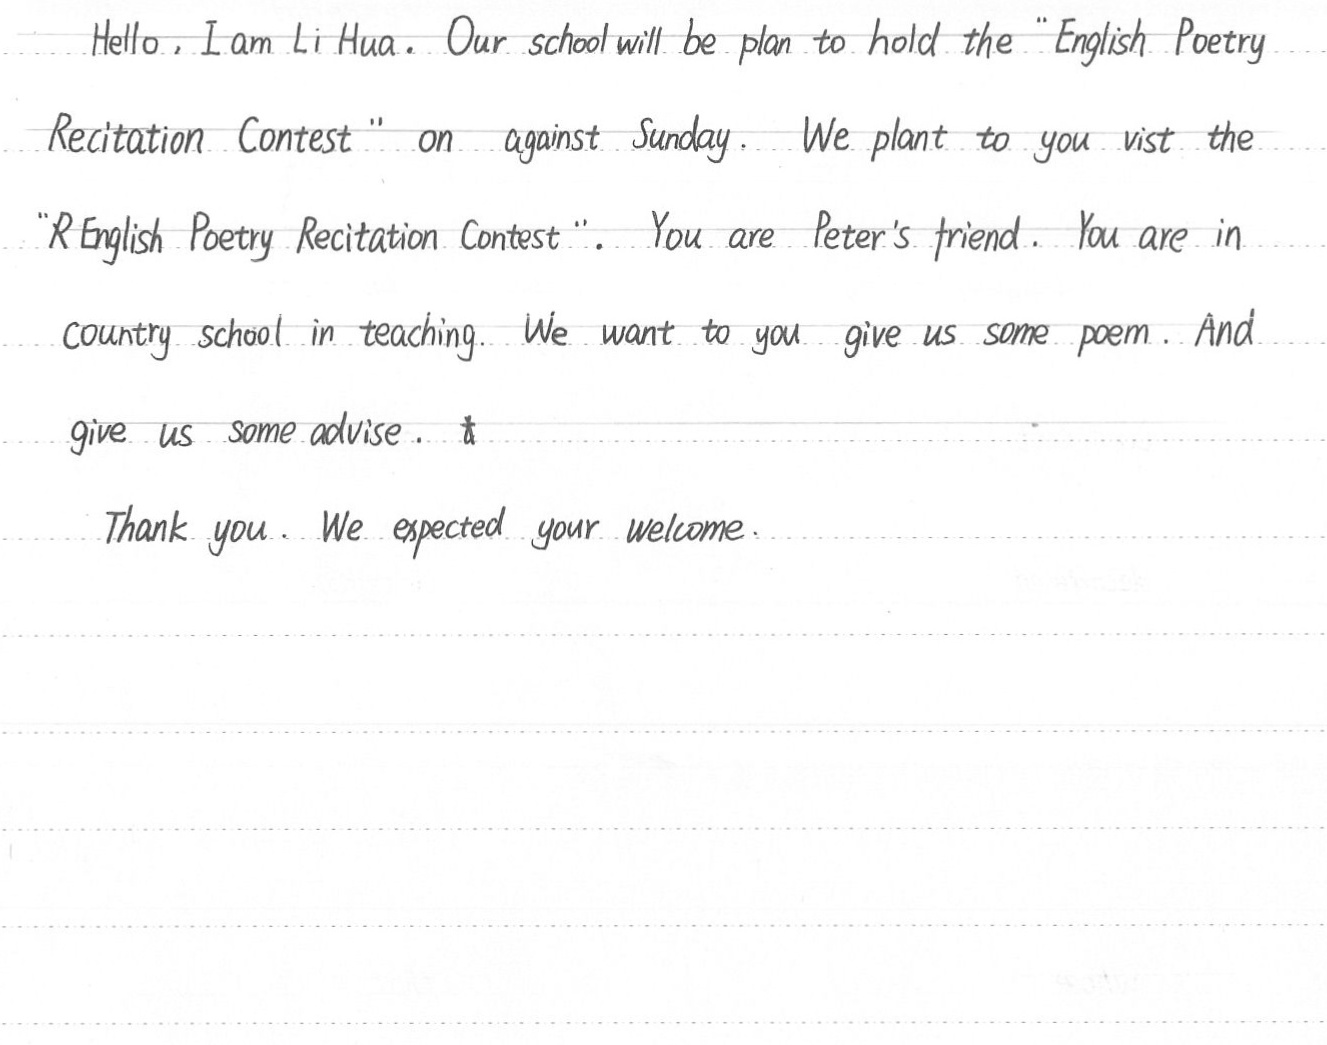 Hello, I am Li Hua. Our school will be plan to hold the "English Poetry
Recitation Contest" on against Sunday. We plant to you vist the
"R English Poetry Recitation Contest". You are Peter's friend. You are in
country school in teaching. We want to you give us some poem. And
give us some advise.
Thank you. We expected your welcome.